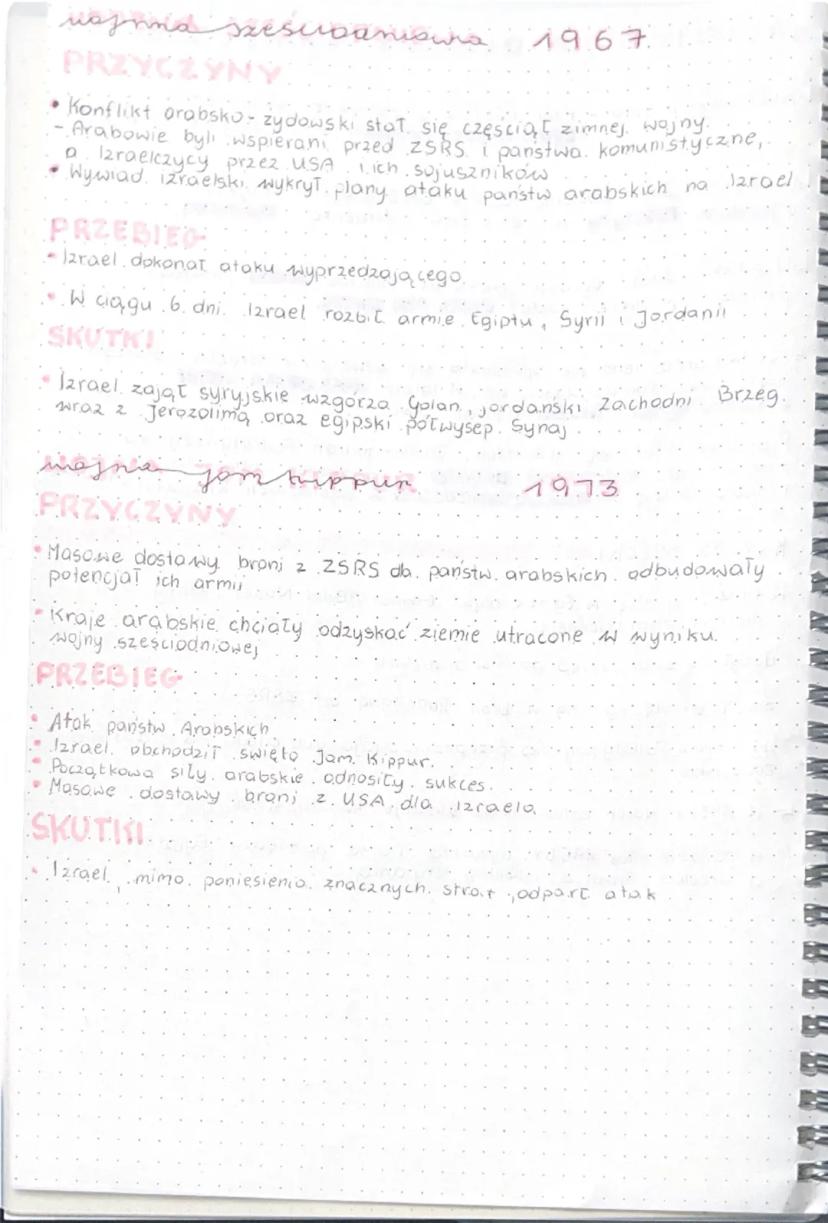 wojna sześciodniowa 1967
PRZYCZYNY
• Konflikt arabsko-żydowski stał się częścią zimnej wojny.
- Arabowie byli wspierani przed ZSRS i państwa komunistyczne,
a Izraelczycy przez USA i ich sojuszników
• Wywiad izraelski wykrył plany ataku państw arabskich na Izrael
PRZEBIEG
• Izrael dokonał ataku wyprzedzającego
• W ciągu 6 dni Izrael rozbił armie Egiptu, Syrii i Jordanii
SKUTKI
• Izrael zajął syryjskie wzgórza Golan, jordański Zachodni Brzeg
wraz z Jerozolimą oraz egipski półwysep Synaj
wojna jom kippur 1973
PRZYCZYNY
• Masowe dostawy broni z ZSRS dla państw arabskich odbudowały
potencjał ich armii
• Kraje arabskie chciały odzyskać ziemie utracone w wyniku
wojny sześciodniowej
PRZEBIEG
• Atak państw Arabskich
• Izrael obchodził święto Jam Kippur.
• Początkowa siły arabskie odnosiły sukces.
• Masowe dostawy broni z USA dla Izraela
SKUTKI
• Izrael, mimo poniesienia znacznych strat, odparł atak